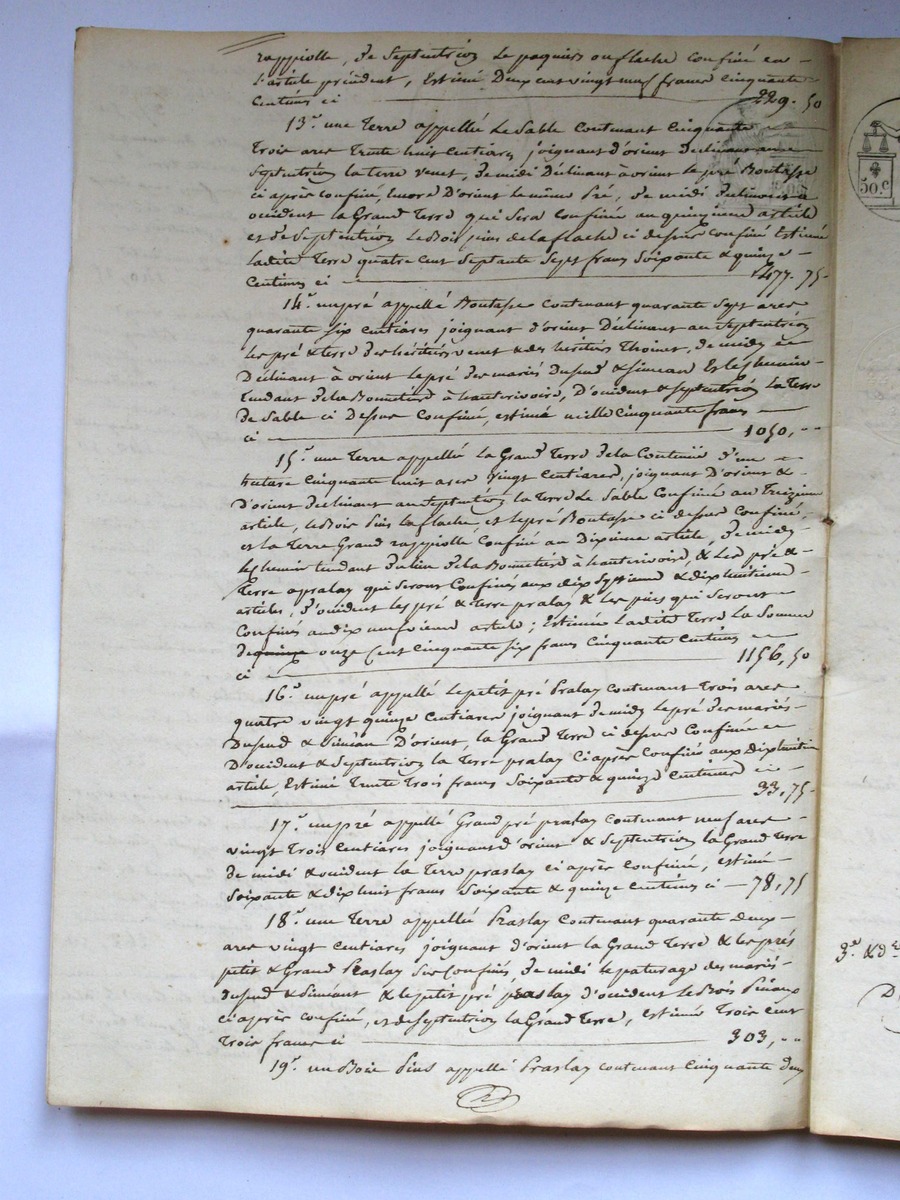 rappiolle, de Septentrion le paquis ou flache confiné en
l'article précédent, Estimé Deux cent vingt neuf francs cinquante
Centimes ci 229. 50
13.° une Terre appellée Le Sable contenant cinquante
Trois ares Trente huit centiares joignant d'orient Déclinant au
Septentrion la terre venet, de midi Déclinant à orient le pré Boutasse
ci après confiné, Encore D'orient le même Pré, de midi Déclinant à
occident la Grand Terre qui Sera confinée au quinzieme article
et de Septentrion Le Bois pins de la flache ci dessus confiné Estimée
Ladite Terre quatre cent Septante Sept francs Soixante & quinze
Centimes ci 477. 75
14.° un pré appellé Boutasse contenant quarante Sept ares
quarante six centiares joignant d'orient Déclinant au Septentrion
les pré & terre des héritiers venet & des héritiers Thoinet, de midi
Déclinant à orient le pré des mariés Dupud & Simean Et le chemin
Tendant de la Bometière à hauterivoire, D'occident & Septentrion La Terre
de Sable ci Dessus confinée, estimé mille cinquante francs
ci 1050, ..
15.° une Terre appellée La Grand Terre de la Contenue d'une
hectare cinquante huit ares vingt Centiares, joignant D'orient &
D'orient Déclinant au Septentrion la Terre Le Sable Confinée au Treizieme
article, le Bois Pins La flache, et le pré Boutasse ci dessus confiné,
et la Terre Grand rappiolle Confiné au Dixieme article, De midi
le chemin tendant du lieu de la Bometière à hauterivoire, & Les pré &
Terre apralay qui seront Confinés aux dix Septieme & dix huitieme
articles, d'occident les pré & terre pralay & les pins qui Seront
Confinés au dix neufvieme article; Estimée Ladite Terre La Somme
de quinze onze Cent Cinquante Six francs Cinquante Centimes
ci 1156, 50
16.° un pré appellé Le petit pré Pralay Contenant Trois ares
quatre vingt quinze Centiares joignant de midi le pré des mariés
Dupud & Siméan D'orient, la Grand Terre ci dessus Confinée
D'occident & Septentrion la Terre pralay Ci après Confinée aux dix huitieme
article, Estimé Trente Trois francs Soixante & quinze Centimes ci
33, 75
17.° un pré appellé Grand pré praslay contenant neuf ares
vingt Trois Centiares joignant d'orient & Septentrion la Grand Terre
de midi & occident la Terre praslay ci après confinée, estimé
Soixante & dix huit francs Soixante & quinze centimes ci 78, 75
18.° une Terre appellée Praslay Contenant quarante deux
ares vingt Centiares joignant d'orient la Grand Terre & les prés
petit & Grand Praslay Sus confinés, de midi le paturage des mariés
dupud & Siméant & le petit pré praslay d'occident le Bois Pinaux
ci après confiné, et de Septentrion la Grand Terre, estimée Trois cent
Trois francs ci 303, ..
19.° un Bois Pins appellé Praslay contenant cinquante deux
50.c
3.e & d.e
D